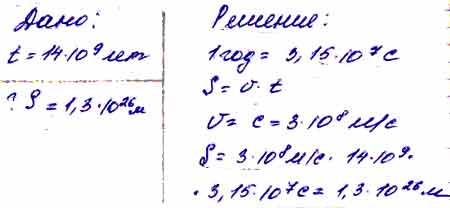 Дано:
t = 14·10⁹ лет
? S = 1,3·10²⁶ м
Решение:
1 год = 3,15·10⁷ с
S = v·t
v = c = 3·10⁸ м/с
S = 3·10⁸ м/с · 14·10⁹·
· 3,15·10⁷ с = 1,3·10²⁶ м